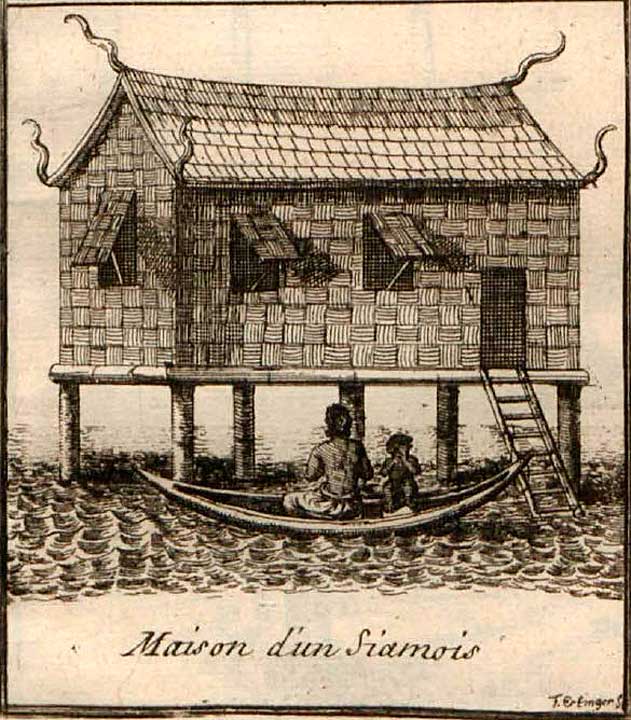 Maison d'un Siamois
F. Ertinger S